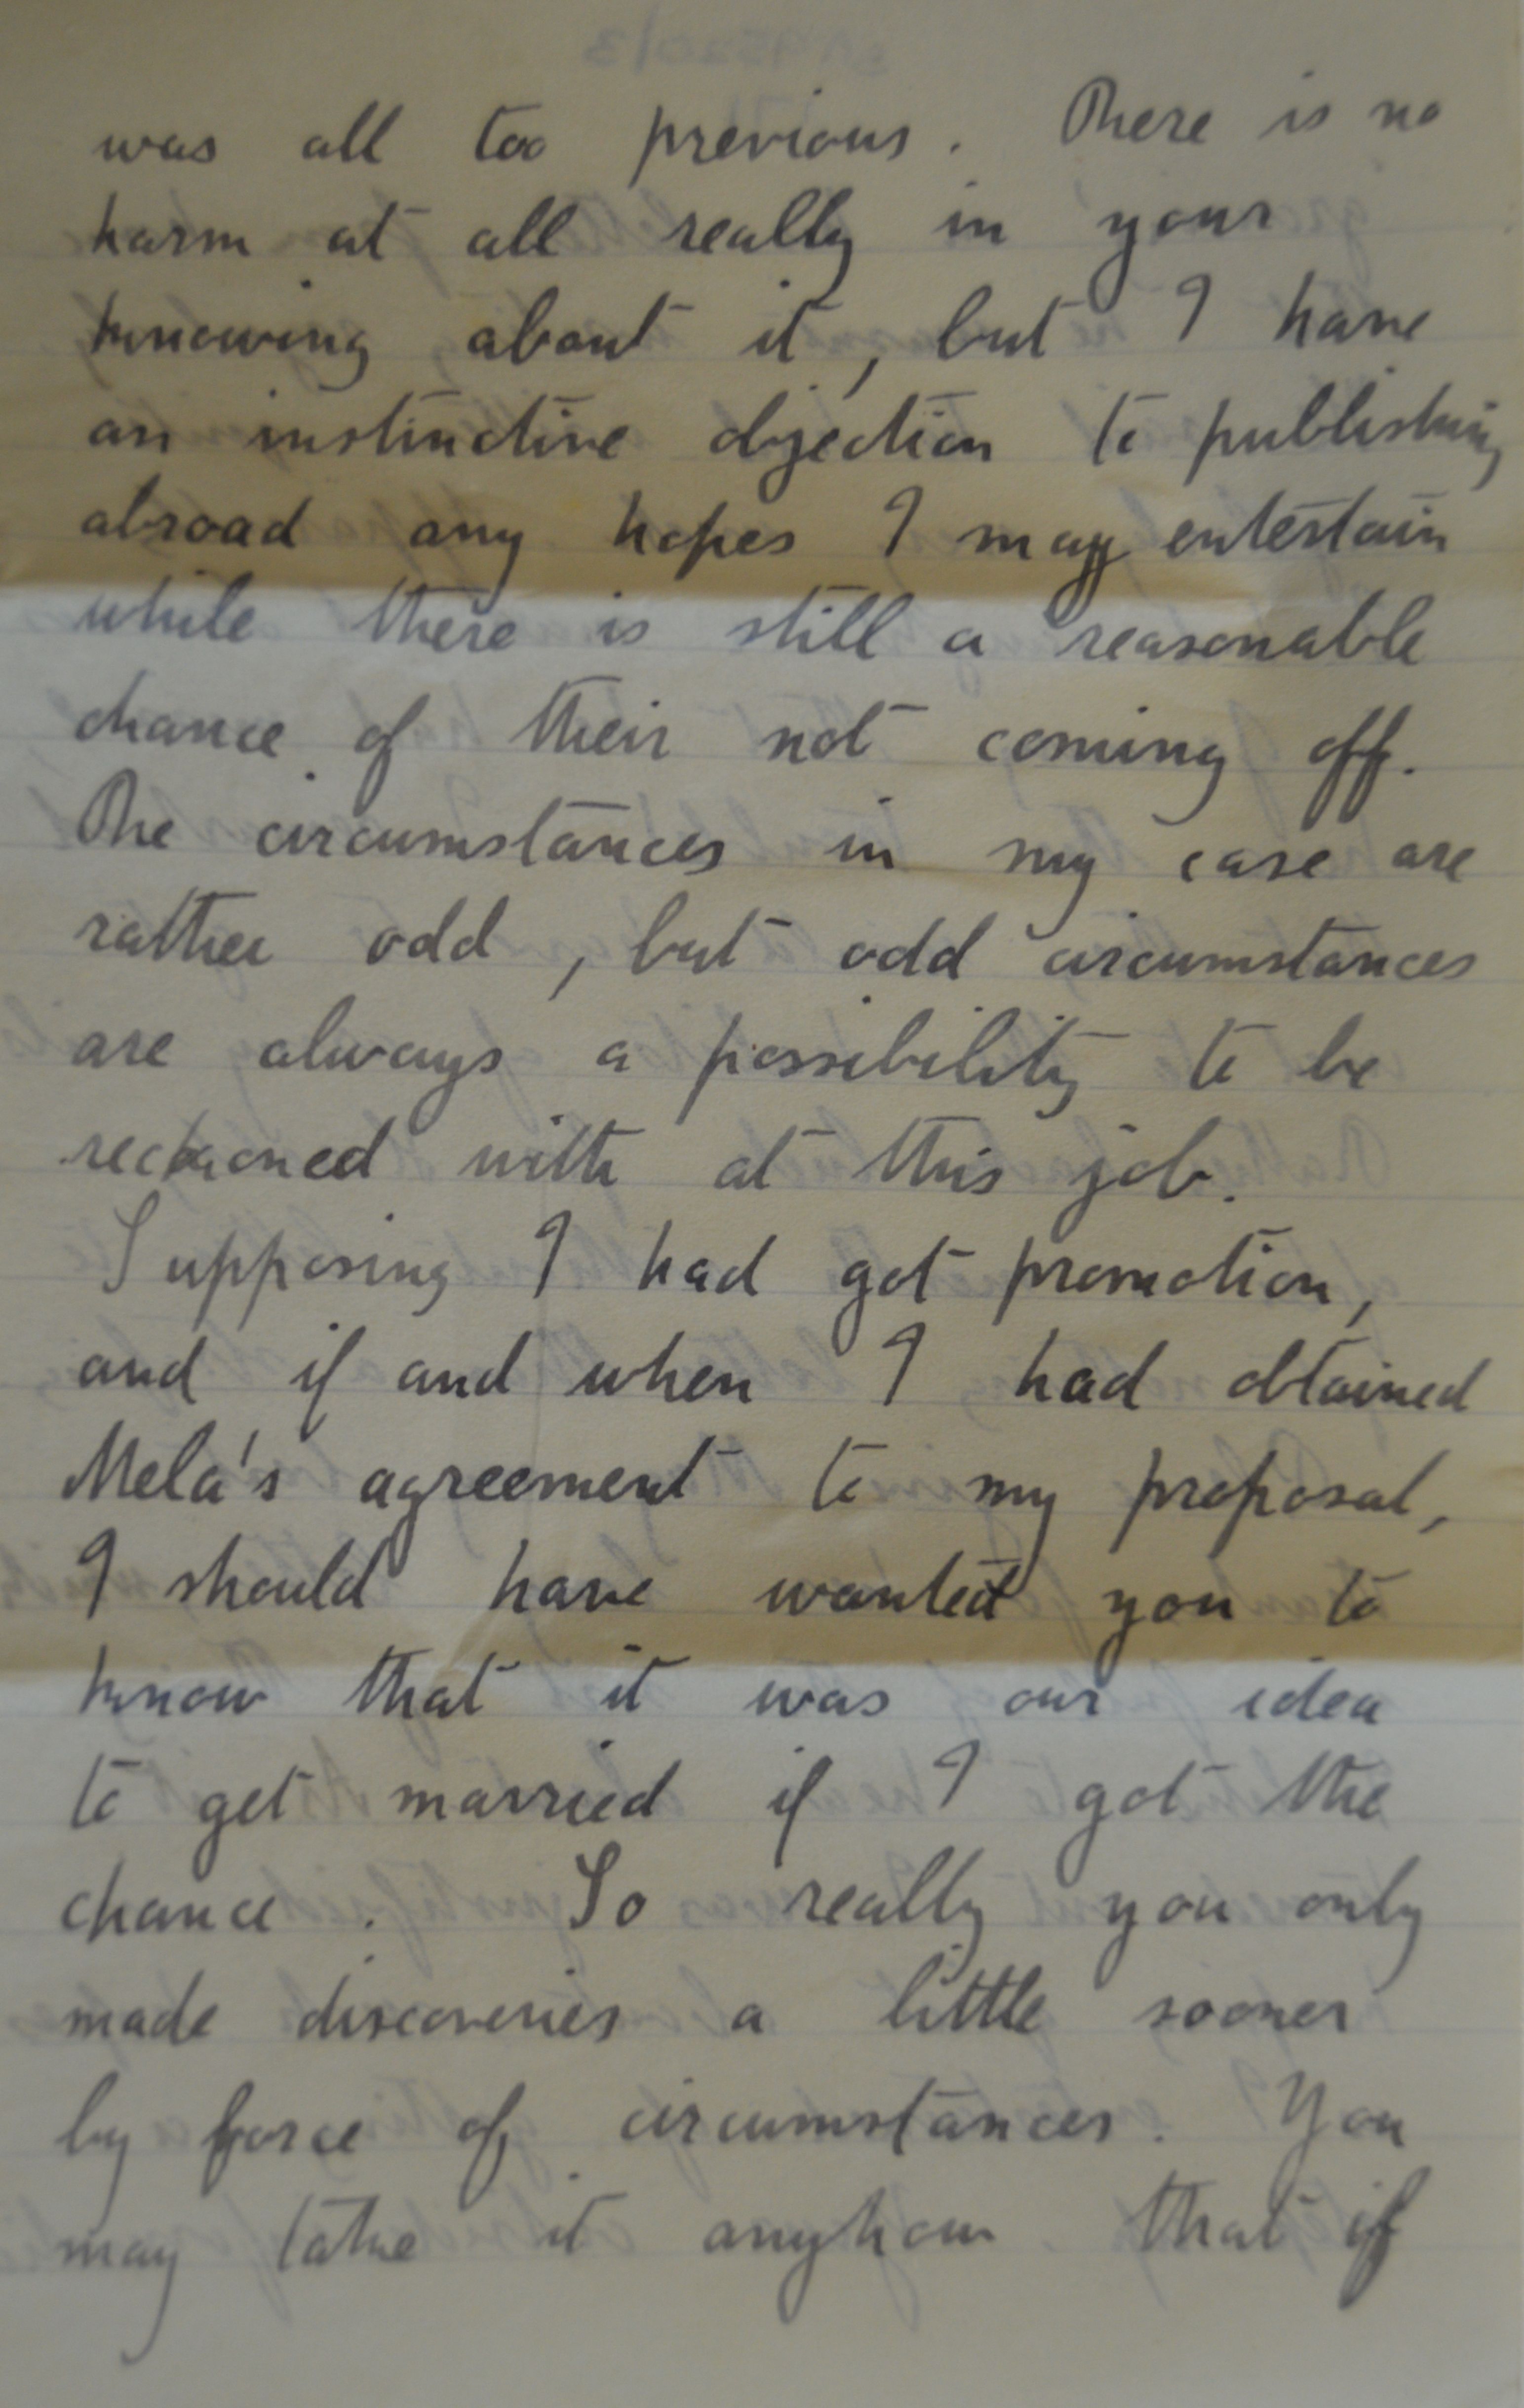 was all too previous. There is no
harm at all really in your
knowing about it, but I have
an instinctive objection to publishing
abroad any hopes I may entertain
while there is still a reasonable
chance of their not coming off.
The circumstances in my case are
rather odd, but odd circumstances
are always a possibility to be
reckoned with at this job.
Supposing I had got promotion,
and if and when I had obtained
Mela's agreement to my proposal,
I should have wanted you to
know that it was our idea
to get married if I got the
chance. So really you only
made discoveries a little sooner
by force of circumstances. You
may take it anyhow that if